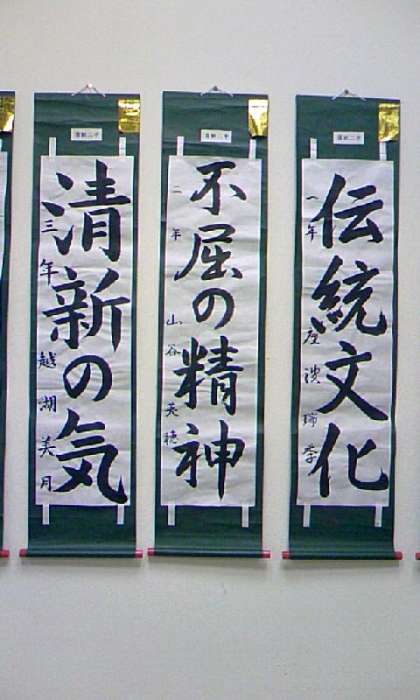 伝統文化
一年
不屈の精神
二年 山谷英穂
清新の気
三年 越湖美月